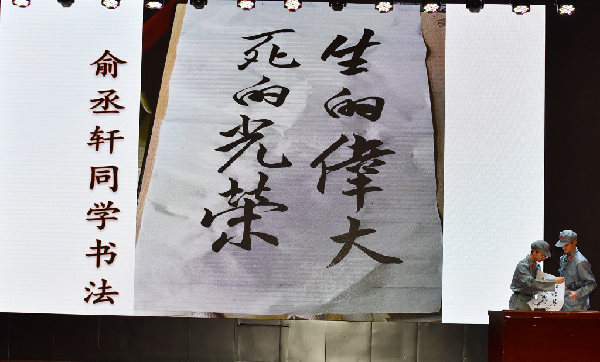 俞丞轩同学书法
生的偉大
死的光荣